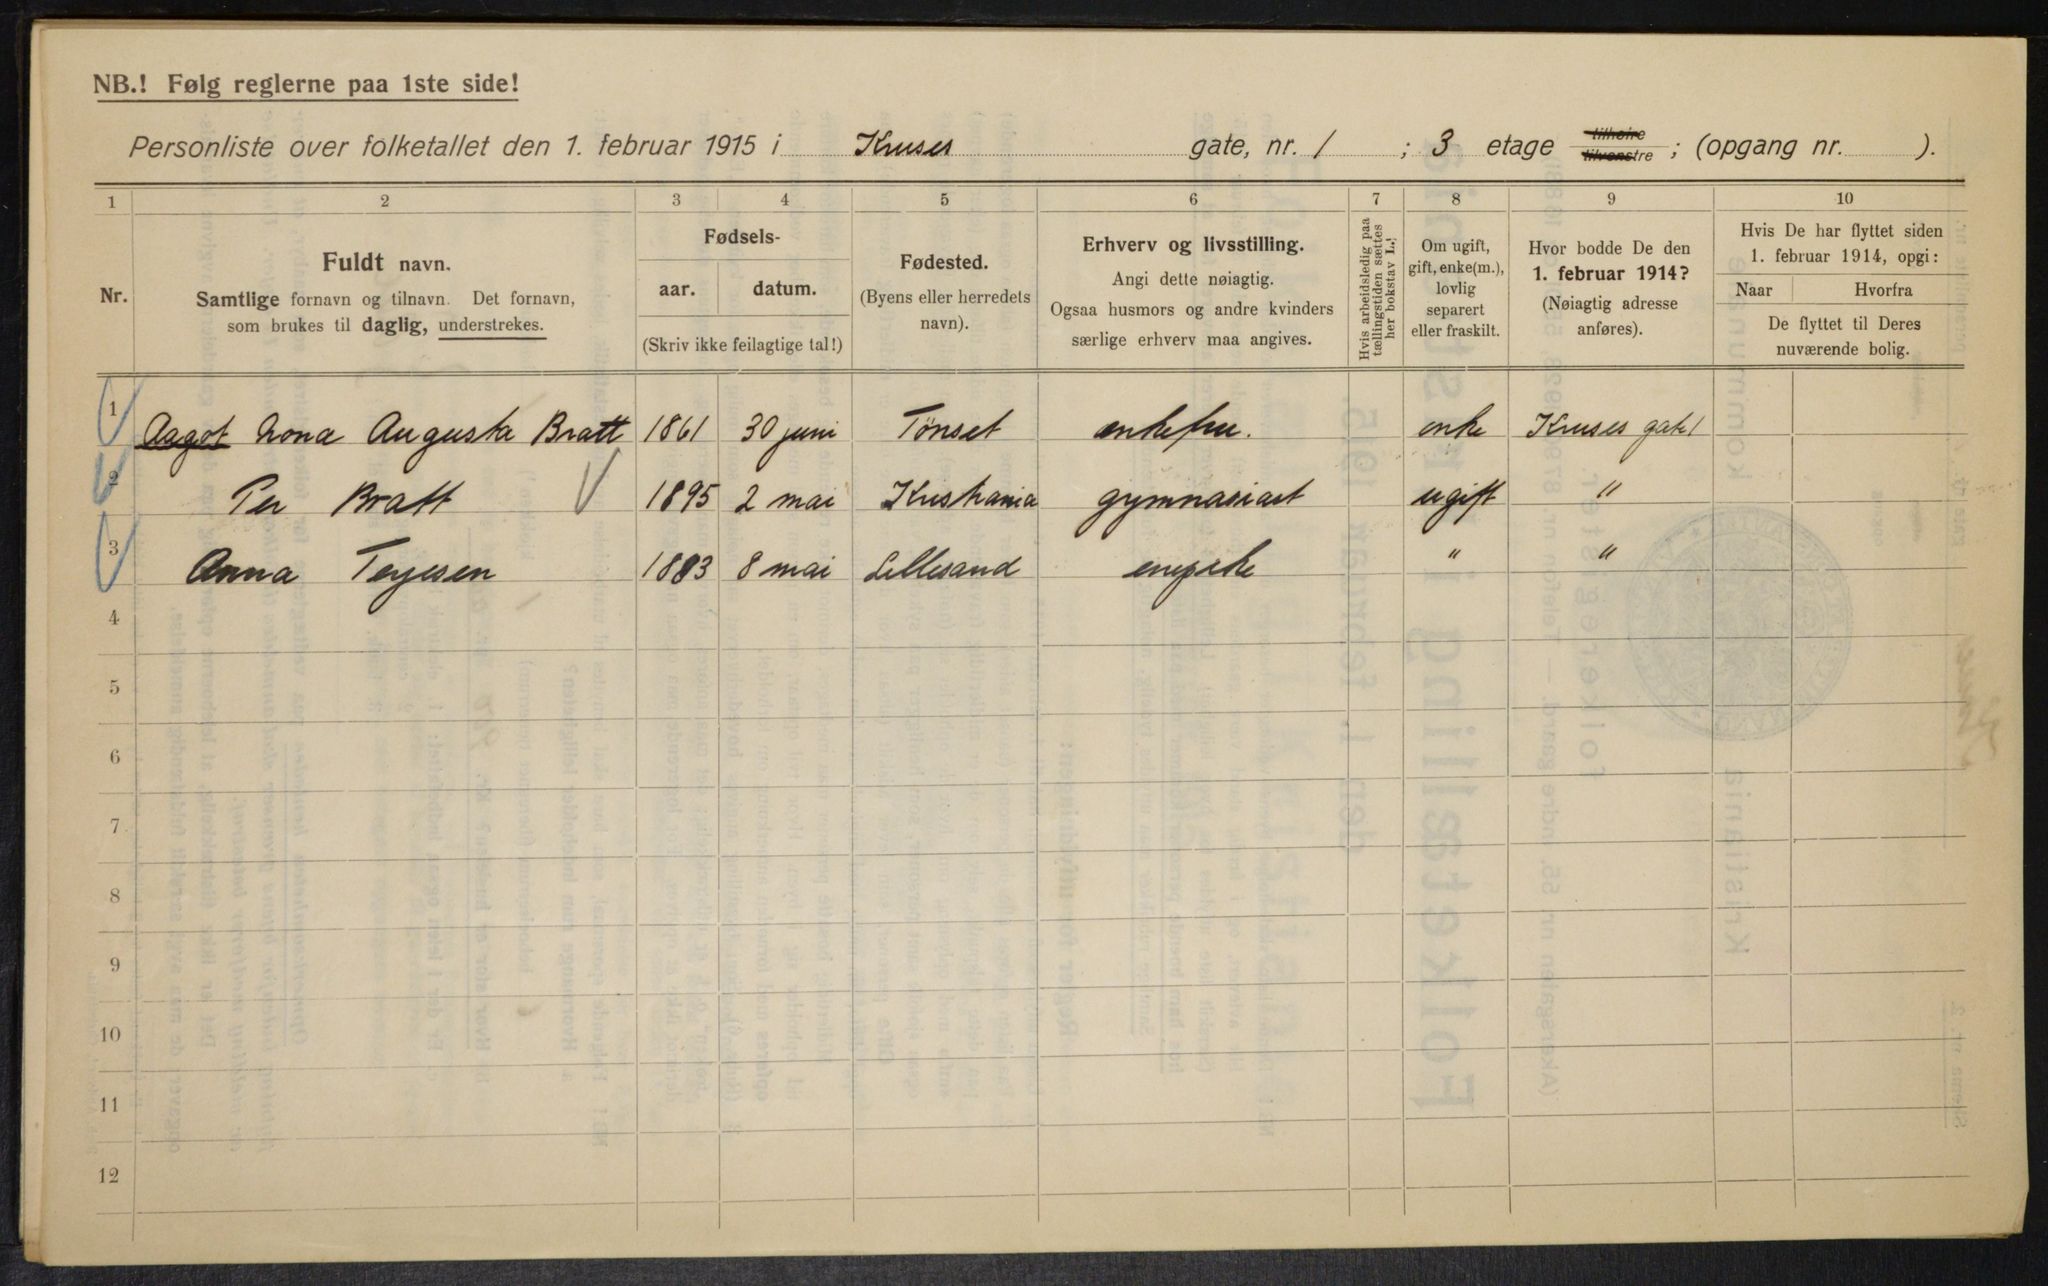 NB.! Følg reglerne paa 1ste side!
Personliste over folketallet den 1. februar 1915 i Kruses gate, nr. 1 ; 3 etage tilhøire tilvenstre ; (opgang nr. ).
1 2 3 4 5 6 7 8 9 10
Nr.
Fuldt navn.
Samtlige fornavn og tilnavn. Det fornavn,
som brukes til daglig, understrekes.
Fødsels-
aar. datum.
(Skriv ikke feilagtige tal!)
Fødested.
(Byens eller herredets
navn).
Erhverv og livsstilling.
Angi dette nøiagtig.
Ogsaa husmors og andre kvinders
særlige erhverv maa angives.
Hvis arbeidsledig paa
tællingstiden sættes
her bokstav L.!
Om ugift,
gift, enke(m.),
lovlig
separert
eller fraskilt.
Hvor bodde De den
1. februar 1914?
(Nøiagtig adresse
anføres).
Hvis De har flyttet siden
1. februar 1914, opgi:
Naar Hvorfra
De flyttet til Deres
nuværende bolig.
1 Aagot Nona Augusta Bratt 1861 30 juni Tönset enkefru. enke Kruses gate 1
2 Per Bratt 1895 2 mai Kristiania gymnasiast ugift "
3 Anna 1883 8 mai Lillesand " "
4
5
6
7
8
9
10
11
12